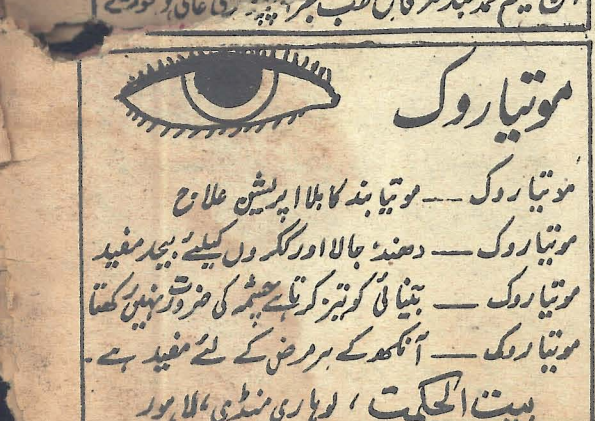 موتیا روک
موتیا روک — موتیا بند کا بلا اپریشن علاج
موتیا روک — دھند، جالا اور ککروں کیلئے بیحد مفید
موتیا روک — بینائی کو تیز کرتا ہے چشمہ کی ضرورت نہیں رکھتا
موتیا روک — آنکھ کے ہر مرض کے لئے مفید ہے۔
بیت الحکمت، لوہاری منڈی، لاہور